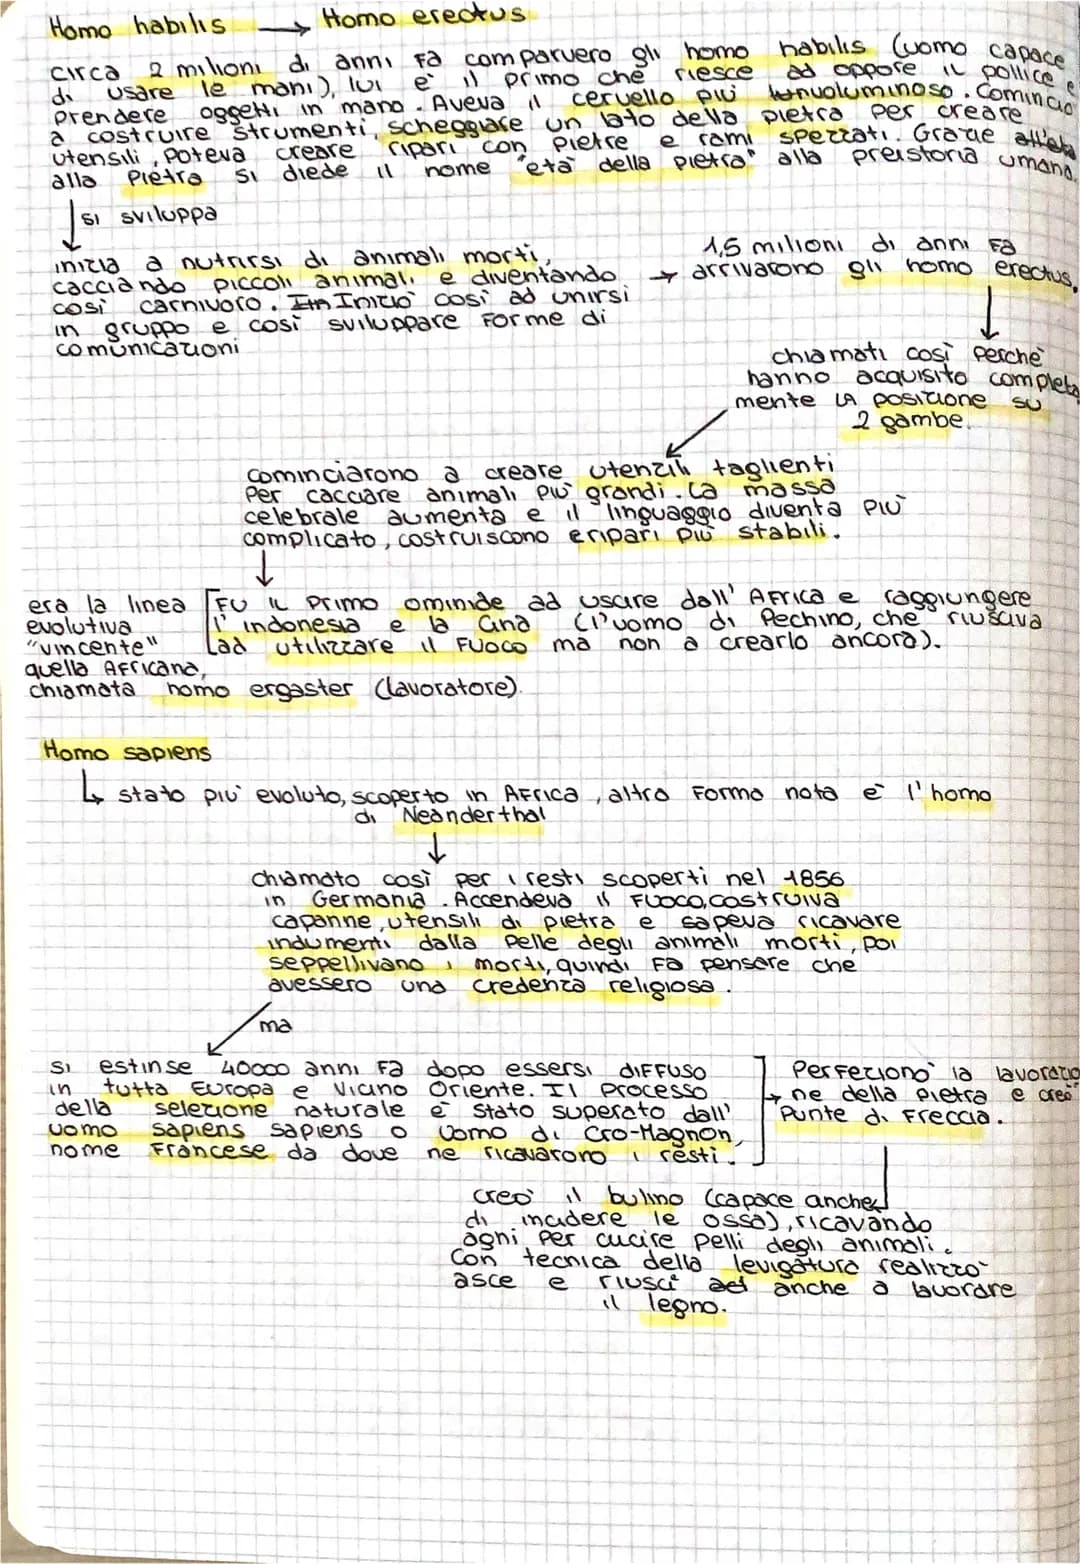 Homo habilis → Homo erectus
circa 2 milioni di anni fa comparvero gli homo habilis (uomo capace
di usare le mani), lui è il primo che riesce ad oppore il pollice e
prendere oggetti in mano. Aveva il cervello più voluminoso. Cominciò
a costruire strumenti, scheggiare un lato della pietra per creare
utensili, poteva creare ripari con pietre e rami spezzati. Grazie
alla pietra si diede il nome "età della pietra" alla preistoria umana.
si sviluppa
inizia a nutrirsi di animali morti,
cacciando piccoli animali e diventando
così carnivoro. Iniziò così ad unirsi
in gruppo e così sviluppare forme di
comunicazioni
1,5 milioni di anni fa
→ arrivarono gli homo erectus,
chiamati così perchè
hanno acquisito completa
mente la posizione su
2 gambe.
cominciarono a creare utenzili taglienti
per cacciare animali più grandi. La massa
celebrale aumenta e il linguaggio diventa più
complicato, costruiscono e ripari più stabili.
era la linea
evolutiva
"vincente"
quella Africana,
chiamata homo ergaster (lavoratore).
Fu il primo ominide ad uscire dall'Africa e raggiungere
l'indonesia e la Cina (l'uomo di Pechino, che riusciva
ad utilizzare il fuoco ma non a crearlo ancora).
Homo sapiens
↳ stato più evoluto, scoperto in Africa, altra forma nota è l'homo
di Neanderthal
chiamato così per i resti scoperti nel 1856
in Germania. Accendeva il fuoco, costruiva
capanne, utensili di pietra e sapeva ricavare
indumenti dalla pelle degli animali morti, poi
seppellivano i morti, quindi fa pensare che
avessero una credenza religiosa.
ma
si estinse 40000 anni fa dopo essersi diffuso
in tutta Europa e Vicino Oriente. Il processo
della selezione naturale è stato superato dall'
uomo sapiens sapiens o uomo di Cro-Magnon,
nome Francese da dove ne ricavarono i resti.
Perfezionò la lavorazio
→ ne della pietra e creò
punte di freccia.
creò il bulino (capace anche
di incidere le ossa), ricavando
agni per cucire pelli degli animali.
Con tecnica della levigatura realizzò
asce e riuscì anche a lavorare
il legno.